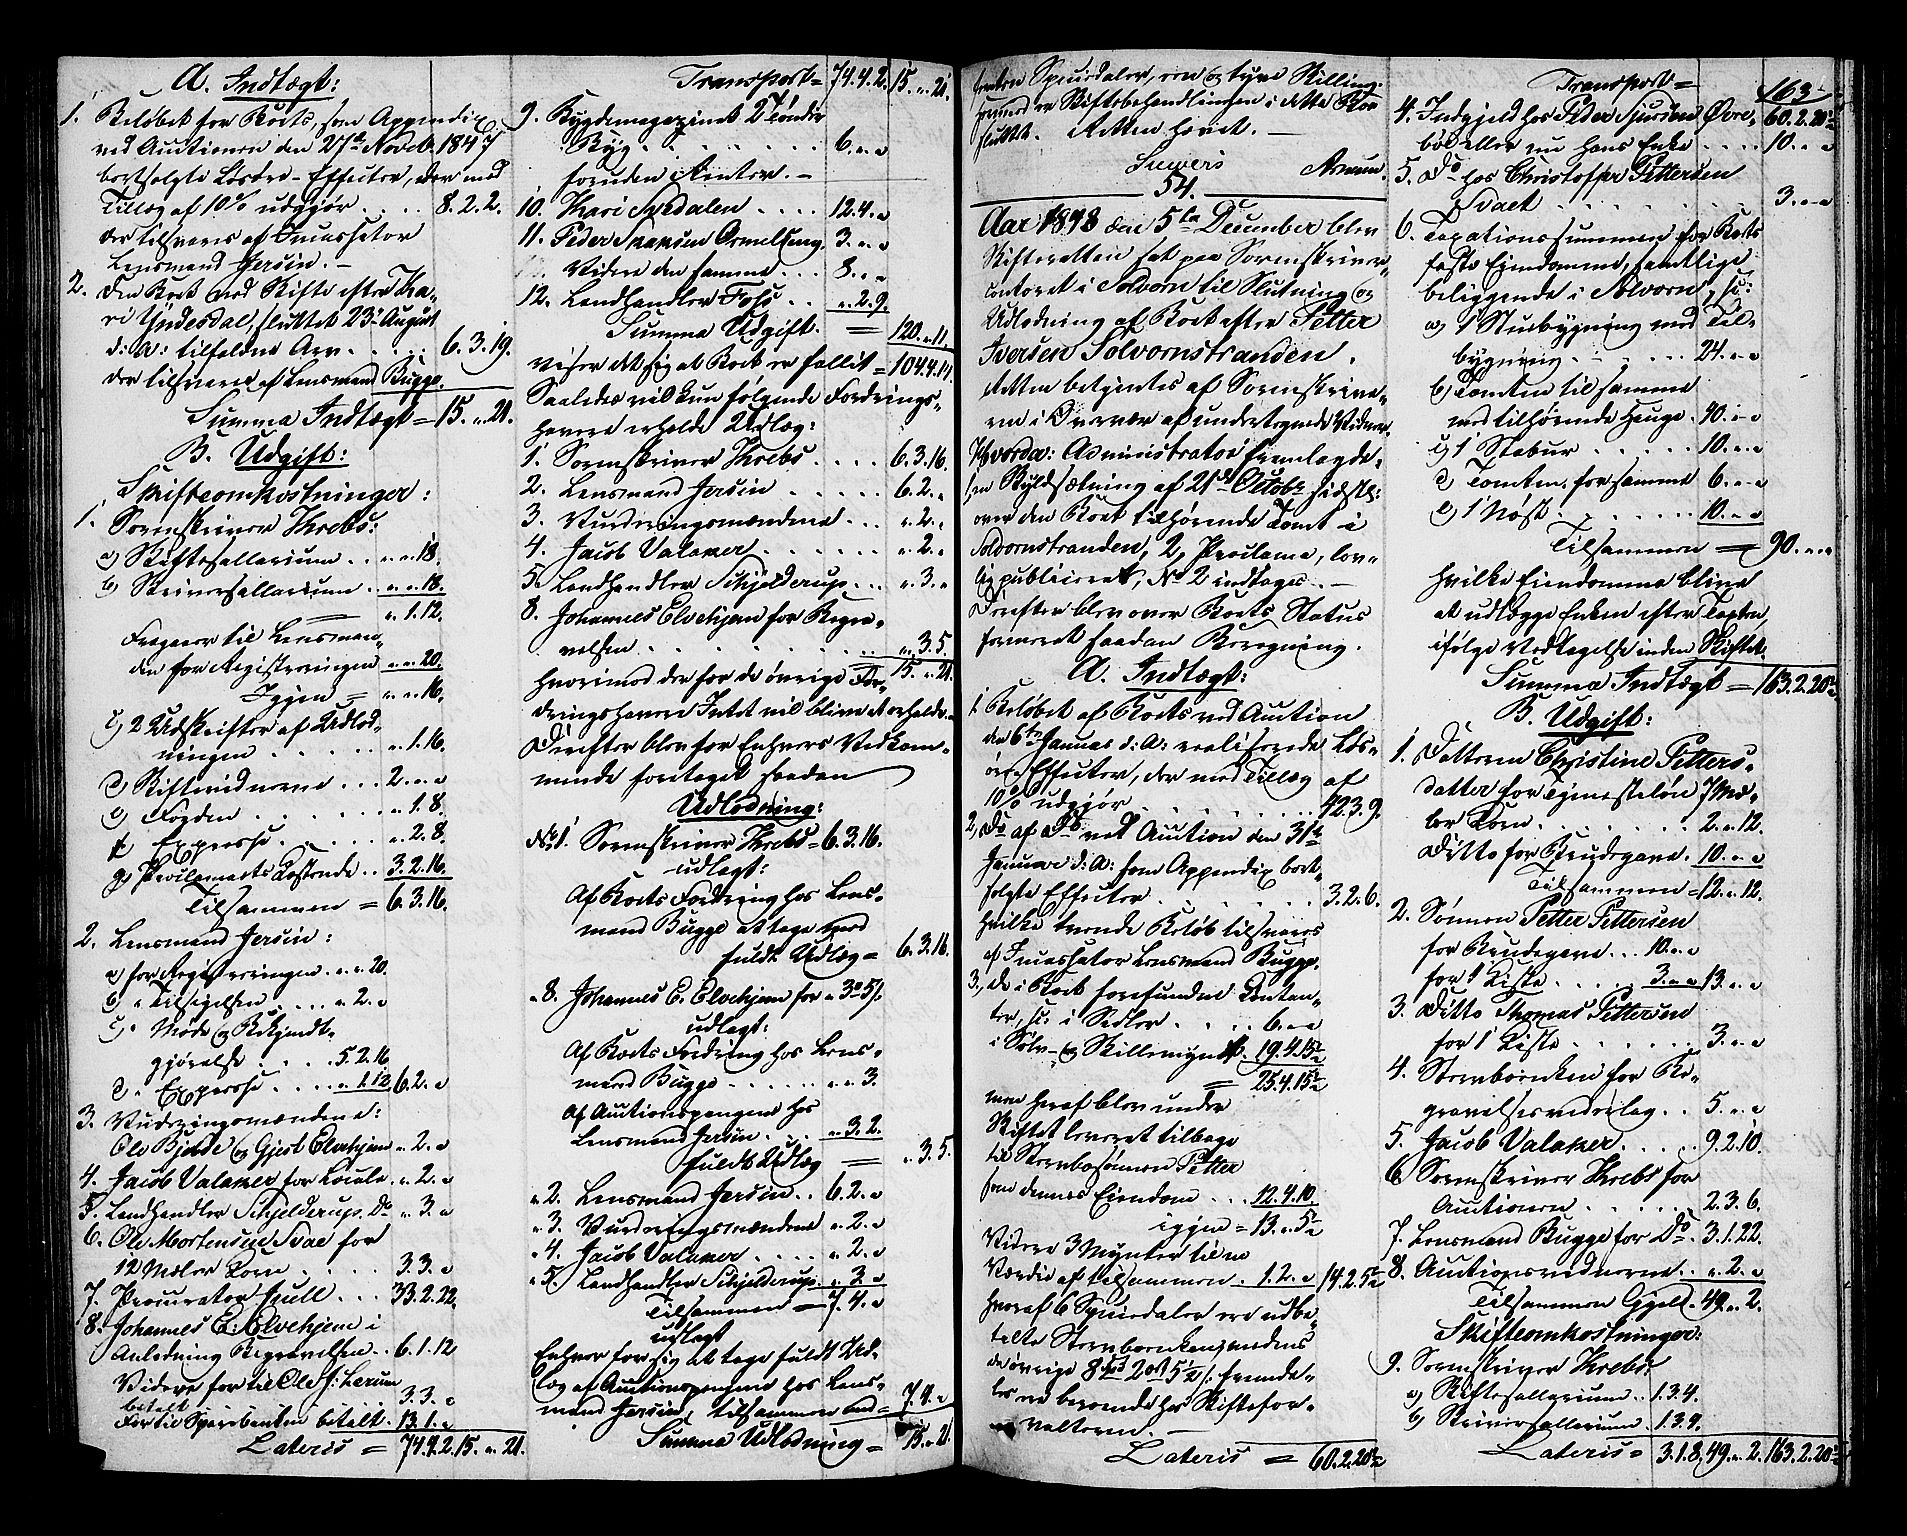 A. Indtægt:
1. Beløbet for Boets, som Appendix
ved Auctionen den 27de Novebr 1847
bortsolgte Løsøre-Effecter, der med
Tillæg af 10% udgjør .... 8.2.2.
der tilsvares af Incassator
Lensmand Jersin. -
2. Den Boet ved Skifte efter Ka-
ri Yndesdal, sluttet 23. August
d: A: tilfaldne Arv. .... 6.3.19.
der tilsvares af Lensmand Bugge.
Summa Indtægt = 15. " 21.
B. Udgift:
Skifteomkostninger:
1. Sorenskriver Krebs:
a) Skiftesallarium .. " " 18.
b) Skriversallarium . " " 18.
= " 1.12.
Fragaaer til Lensman-
den for Registreringen " " 20.
Igjen = " " 16.
c) 2 Udskrifter af Udlod-
ningen ...... " 1.16.
d) Skiftevidnerne ... 2. " "
e) Fogden ...... " 1.8.
f) Expresse ..... " 2.8.
g) Proclamaets Kostende .. 3.2.16.
Tilsammen = 6.3.16.
2. Lensmand Jersin:
a) for Registreringen . " " 20.
b) " Tilsigelsen .... " 2. "
c) " Møde og Bekjendt-
gjørelse .... 5.2.16
d. " Expresse .... " 1.12 6.2. "
3. Vurderingsmændene:
Ole Bjelde og Gjest Elvehjem " 2. "
4. Jacob Valaker for Locale . " 2. "
5. Landhandler Schjelderup Do " 3. "
6. Ole Mortensen Svae for
12 Mæler Korn ..... 3.3. "
7. Procurator Juell ... 33.2.22.
8. Johannes E: Elvehjem i
Anledning Begravelsen .. 6.1.12
Videre for til Ole J: Lerum
betalt ...... 3.3. "
For til Sparebanken betalt . 13.1. "
Lateris = 74.4.2. 15. " 21.
Transport = 74.4.2. 15. " 21.
9. Bygdemagazinet 2 Tønder
Byg ........ 6. " "
foruden Renter. -
10. Kari Svedalen .... 12.4. "
11. Peder Ormelseng 3. " "
Videre den samme ... 8. " "
12. Landhandler Foss .. " 2.9.
Summa Udgift. = 120. " 11.
viser det sig at Boet er fallit = 104.4.14.
Saaledes vil kun følgende Fordrings-
havere erholde Udlæg:
1. Sorenskriver Krebs .... 6.3.16.
2. Lensmand Jersin ..... 6.2. "
3. Vurderingsmændene ... " 2. "
4. Jacob Valaker ...... " 2. "
5. Landhandler Schjelderup ... " 3. "
8. Johannes Elvehjem for Begra-
velsen ........ " 3.5.
15. " 21.
hvorimod der for de øvrige For-
dringshavere Intet vil blive at erholde. -
Derefter blev for Enhvers Vedkom-
mende foretaget saadan
Udlodning:
No 1. Sorenskriver Krebs = 6.3.16.
udlagt:
Af Boets Fordring hos Lens-
mand Bugge at tage med
fuldt Udlæg = 6.3.16.
" 8. Johannes E. Elvehjem for " 3 5/.
udlagt:
Af Boets Fordring hos Lens-
mand Bugge ...... " " 3.
Af Auctionspengene hos
Lensmand Jersin ... " 3.2.
fuldt Udlæg = " 3.5.
" 2. Lensmand Jersin .. 6.2. "
" 3. Vurderingsmændene " 2. "
" 4. Jacob Valaker .... " 2. "
" 5. Landhandler Schjelderup . " 3. "
Tilsammen = 7.4. "
udlagt
Enhver for sig at tage fuldt Ud-
læg af Auctionspengene hos Lens-
mand Jersin, tilsammen med = 7.4. "
Summa Udlodning = 15. " 21.
femten Speciedaler, een og tyve Skilling.
hermed er Skiftebehandlingen i dette Boe
sluttet. Retten hævet. -
54.
Aar 1848 den 5te December blev
Skifteretten sat paa Sorenskriver-
contoret i Solvorn til Slutning og
Udlodning af Boet efter Petter
Iversen Solvornstranden.
Retten betjentes af Sorenskrive-
ren i Overvær af undertegnede Vidner.
Hvorda: Administrator fremlagde
en Skyldsætning af 21de Octobr sidstl:
over den Boet tilhørende Tomt i
Solvornstranden, 2, Proclama, lov-
lig publiceret, No 2 indtages. -
Derefter blev over Boets Status
formeret saadan Beregning.
A. Indtægt:
1. Beløbet af Boets ved Auction
den 6te Januar d: A: realiserede Løs-
øre-Effecter, der med Tillæg af
10% udgjør ....... 42.3.9.
2, Do af Do ved Auction den 31te
Januar d: A: som Appendix bort-
solgte Effecter ....... 3.2.6.
hvilke tvende Beløb tilsvares
af Incassator Lensmand Bugge.
3., De i Boet forefundne Contan-
ter, sc: i Sedler .... 6. " "
i Sølv- og Skillemynt . 19.4.15½
= 25.4.15½
men heraf blev under
Skiftet leveret tilbage
til Stervbosønnen Petter
som dennes Eiendom ... 12.4.10.
igjen = 13. " 5½
Videre 3 Mynter til en
Værdie af tilsammen . 1.2. " 14.2.5½
hvoraf 6 Speciedaler ere udbe-
talte Stervboenken, medens
de øvrige 8 Spd 2 ort 5½ /: fremde-
les ere beroende hos Skiftefor-
valteren. -
Lateris = 60.2.20½
Transport = 163.
60.2.20½
4. Indgjeld hos Peder Sjursen Øvre-
bøe eller nu hans Enke .... 10. " "
5. Do hos Christoffer Pettersen
Svaet ........ 3. " "
6. Taxationssummen for Boets
faste Eiendomme, samtlige
beliggende i Solvorn, sc:
a) 1 Stuebygning med Til-
bygning ...... 24. " "
b) Tomten til samme
med tilhørende Hauge . 40. " "
c) 1 Stabur ..... 10. " "
d) Tomten for samme 6. " "
e) 1 Nøst ....... 10. " "
Tilsammen = 90. " "
hvilke Eiendomme blive
at udlægge Enken efter Taxten,
ifølge Vedtagelse inden Skiftet.
Summa Indtægt = 163.2.20½
B. Udgift:
1. Datteren Christine Petters-
datter for Tjenesteløn 7 Mæ-
ler Korn ....... 2. " 12.
Ditto for Brudegave . 10. " "
Tilsammen = 12. " 12.
2. Sønnen Petter Pettersen
for Brudegave ... 10. " "
for 1 Kiste ..... 3. " " 13. " "
3. Ditto Thomas Pettersen
for 1 Kiste ...... 3. " "
4. Stervboenken for Be-
gravelsesvederlag .. 5. " "
5. Jacob Valaker .... 9.2.10.
6 Sorenskriver Krebs for
Auctionen ...... 2.3.6.
7. Lensmand Bugge for Do . 3.1.22.
8. Auctionsvidnerne .. " 2. "
Tilsammen Gjeld . 49. " 2.
Skifteomkostninger:
9. Sorenskriver Krebs:
a) Skiftesallarium .. 1.3.4.
b) Skriversallarium . 1.3.4.
Lateris = 3.1.8. 49. " 2. 163.2.20½